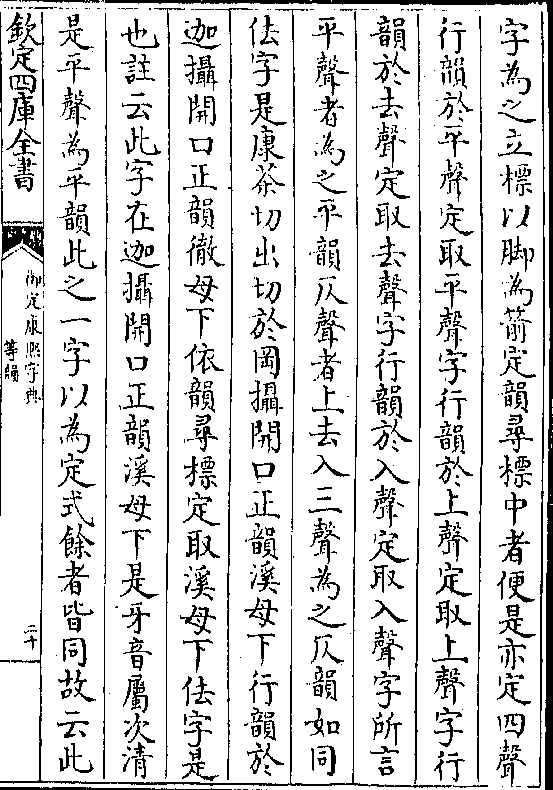 字為之立標以脚為箭定韻尋標中者便是亦定四聲
行韻於平聲定取平聲字行韻於上聲定取上聲字行
韻於去聲定取去聲字行韻於入聲定取入聲字所言
平聲者為之平韻仄聲者上去入三聲為之仄韻如同
佉字是康茶切出切於岡攝開口正韻溪母下行韻於
迦攝開口正韻徹母下依韻尋標定取溪母下佉字是
也註云此字在迦攝開口正韻溪母下是牙音屬次清
是平聲為平韻此之一字以為定式餘者皆同故云此
欽定四庫全書
御定康熙字典
等韻
二十